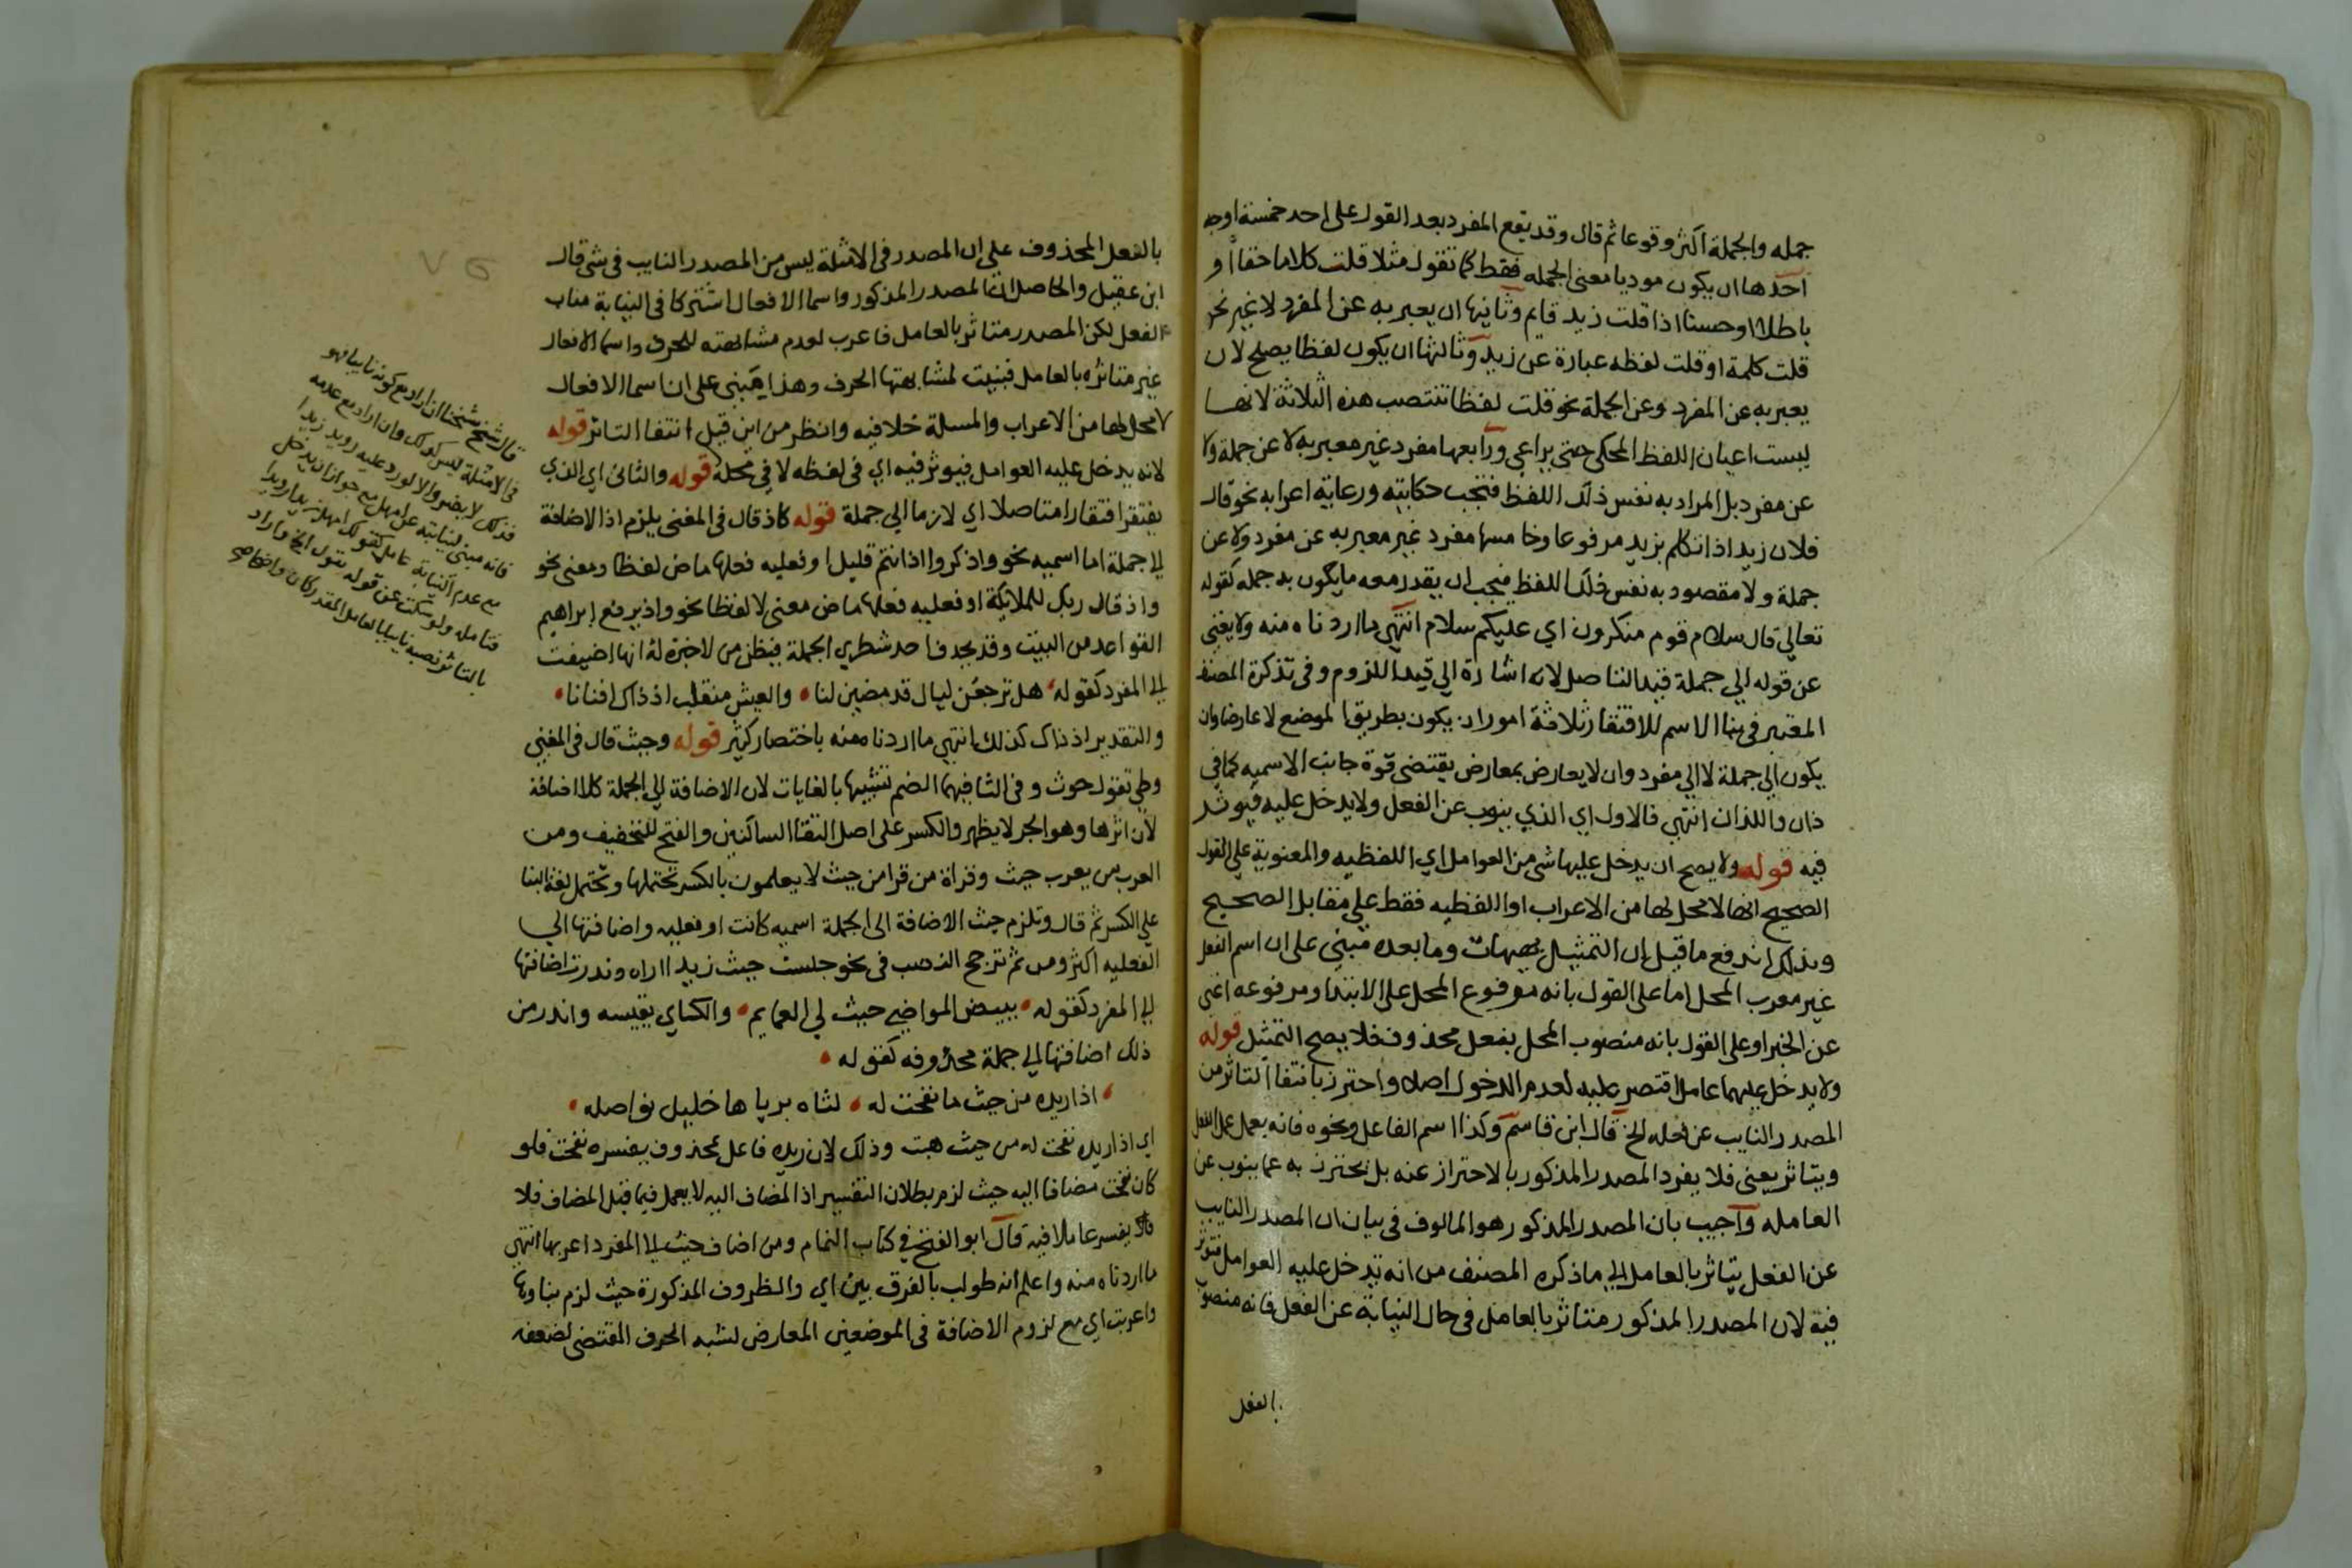 جمله والجملة اكثر وقوعا ثم قال وقد يقع المفرد بعد القول على احد خمسة اوجه
احدها ان يكون موديا معنى الجمله فقط كما تقول مثلا قلت كلاما حقا او
باطلا او حسنا اذا قلت زيد قايم وثانيها ان يعبر به عن المفرد لا غير نحو
قلت كلمة او قلت لفظه عبارة عن زيد وثالثها ان يكون لفظا يصلح لان
يعبر به عن المفرد وعن الجملة نحو قلت لفظا تنتصب هذه الثلاثة لانها
ليست اعيان اللفظ المحكى حتى يراعي ورابعها مفرد غير معبر به لا عن جملة ولا
عن مفرد بل المراد به نفس ذلك اللفظ فتجب حكايته ورعاية اعرابه نحو قال
فلان زيد اذا تكلم بزيد مرفوعا وخامسها مفرد غير معبر به عن مفرد ولا عن
جملة ولا مقصود به نفس ذلك اللفظ فيجب ان يقدر معه ما يكون به جمله كقوله
تعالي قال سلام قوم منكرون اي عليكم سلام انتهي ما اردناه منه ولا يغني
عن قوله الي جملة قيد التاصل لانه اشارة الي قيد اللزوم وفي تذكرة المصنف
المعتبر في بنا الاسم للافتقار ثلاثة امور ان يكون بطريق الموضع لا عارضا وان
يكون الي جملة لا الي مفرد وان لا يعارض بمعارض يقتضي قوة جانب الاسميه كما في
ذان واللذان انتهي فالاول اي الذي ينوب عن الفعل ولا يدخل عليه فيوثر
فيه قوله ولا يصح ان يدخل عليها شي من العوامل اي اللفظيه والمعنوية علي القول
الصحيح انها لا محل لها من الاعراب او اللفظيه فقط علي مقابل الصحيح
وبذلك اندفع ما قيل ان التمثيل بهيهات وما بعده مبني على ان اسم الفعل
غير معرب المحل اما على القول بانه مرفوع المحل على الابتدا ومرفوعه اغني
عن الخبر او على القول بانه منصوب المحل بفعل محذوف فلا يصح التمثل قوله
ولا يدخل عليهما عامل اقتصر عليه لعدم الدخول اصلا واحترز بانتفا التاثر من
المصدر النايب عن فعله الخ قال ابن قاسم وكذا اسم الفاعل ونحوه فانه يعمل عمل الفعل
ويتاثر يعني فلا يفرد المصدر المذكور بالاحتراز عنه بل يحترز به عما ينوب عن
العامله واجيب بان المصدر المذكور هو المالوف في بيان ان المصدر النايب
عن الفعل يتاثر بالعامل الي ما ذكره المصنف من انه تدخل عليه العوامل فتوثر
فيه لان المصدر المذكور متاثر بالعامل في حال النيابة عن الفعل فانه منصوب
بالفعل
بالفعل المحذوف على ان المصدر في الامثلة ليس من المصدر النايب في شي قال
ابن عقيل والحاصل ان المصدر المذكور واسما الافعال اشتركا في النيابة مناب
الفعل لكن المصدر متاثر بالعامل فاعرب لعدم مشابهته للحرف واسما الافعال
غير متاثره بالعامل فبنيت لمشابهتها الحرف وهذا مبني على ان اسما الافعال
لا محل لها من الاعراب والمسلة خلافيه وانظر من اين قيل انتفا التاثر قوله
لانه يدخل عليه العوامل فيوثر فيه اي في لفظه لا في محله قوله والثاني اي الذي
يفتقر افتقارا متاصلا اي لازما الي جملة قوله كاذ قال في المغني يلزم اذ الاضافة
الي جملة اما اسميه نحو واذكروا اذ انتم قليل او فعليه فعلها ماض لفظا ومعنى نحو
واذ قال ربك للملايكة او فعليه فعلها ماض معنى لا لفظا نحو واذ يرفع ابراهيم
القواعد من البيت وقد يحذف احد شطري الجملة فيظن من لا خبرة له انها اضيفت
الي المفرد كقوله هل ترجعن ليال قد مضين لنا والعيش منقلب اذ ذاك افنانا
والتقدير اذ ذاك كذلك انتهي ما اردنا منه باختصار كثير قوله وحيث قال في المغني
وطي تقول حوث وفي الثا فيهما الضم تشبيها بالغايات لان الاضافة الي الجملة كلا اضافة
لان اثرها وهو الجر لا يظهر والكسر على اصل التقا الساكنين والفتح للتخفيف ومن
العرب من يعرب حيث وقراة من قرا من حيث لا يعلمون بالكسر تحتملها وتحتمل لغة البنا
علي الكسر ثم قال وتلزم حيث الاضافة الى الجملة اسميه كانت او فعليه واضافتها الي
الفعليه اكثر ومن ثم ترجح النصب في نحو جلست حيث زيدا اراه وندرت اضافتها
الي المفرد كقوله ببيض المواضي حيث لي العمايم والكساي يقيسه واندر من
ذلك اضافتها الي جملة محذوفه كقوله
اذا ريده من حيث ما نفحت له لتاه برياها خليل يواصله
اي اذا ريده نفحت له من حيث هبت وذلك لان ريده فاعل بمحذوف يفسره نفحت فلو
كان نفحت مضافا اليه حيث لزم بطلان التفسير اذ المضاف اليه لا يعمل فيما قبل المضاف فلا
يفسر عاملا فيه قال ابو الفتح في كتاب التمام ومن اضاف حيث الي المفرد اعربها انتهي
ما اردناه منه واعلم انه طولب بالفرق بين اي والظروف المذكورة حيث لزم بناوها
واعربت اي مع لزوم الاضافة في الموضعين المعارض لشبه الحرف المقتضي لضعفه
قال شيخ شيخنا ان اراد مع كونه نايبا فهو
في الامثلة ليس كذلك وان اراد مع عدمه
فذلك لا يضر والا لورد عليه رويد زيدا
فانه مبني لنيابته عن امهل مع جواز ان يدخل
مع عدم النيابة عامل كقولك امهل زيدا رويدا
فتامله ولو سكت عن قوله بقول الخ واراد
بالتاثر نصبه نايبا بالعامل المقدر كان واضحا